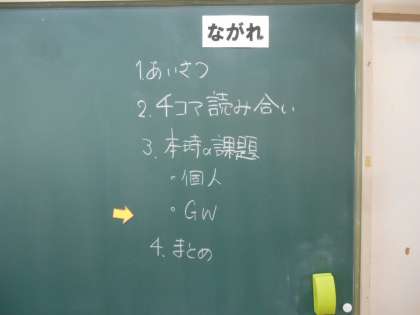 ながれ
1.あいさつ
2.4コマ読み合い
3.本時の課題
・個人
・GW
4.まとめ